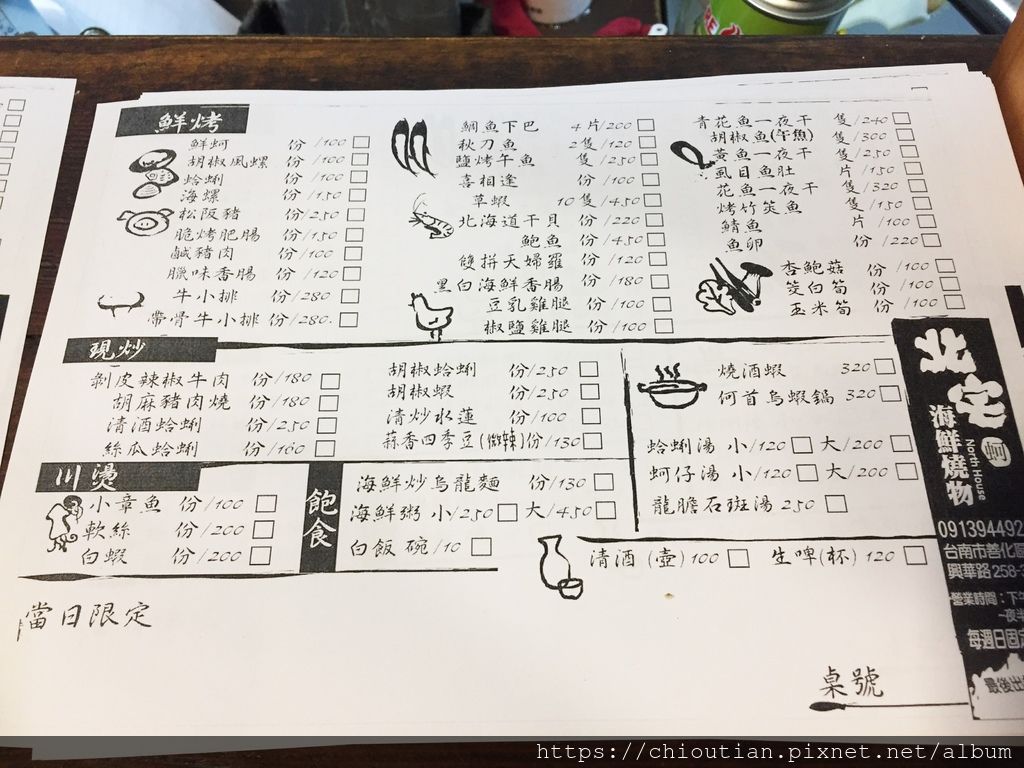 鮮烤
鮮蚵 份/100
胡椒風螺 份/100
蛤蜊 份/100
海螺 份/150
松阪豬 份/250
脆烤肥腸 份/150
鹹豬肉 份/100
臘味香腸 份/120
牛小排 份/280
帶骨牛小排 份/280.
鯛魚下巴 4片/200
秋刀魚 2隻/120
鹽烤午魚 隻/250
喜相逢 份/100
草蝦 10隻/450
北海道干貝 份/220
鮑魚 份/450
雙拼天婦羅 份/120
黑白海鮮香腸 份/180
豆乳雞腿 份/100
椒鹽雞腿 份/100
青花魚一夜干 隻/240
胡椒魚(午魚) 隻/300
黃魚一夜干 隻/250
虱目魚肚 片/150
花魚一夜干 隻/320
烤竹筴魚 隻/150
鯖魚 片/100
魚卵 份/220
杏鮑菇 份/100
筊白筍 份/100
玉米筍 份/100
現炒
剝皮辣椒牛肉 份/180
胡麻豬肉燒 份/180
清酒蛤蜊 份/250
絲瓜蛤蜊 份/160
胡椒蛤蜊 份/250
胡椒蝦 份/250
清炒水蓮 份/100
蒜香四季豆(微辣)份/130
燒酒蝦 320
何首烏蝦鍋 320
蛤蜊湯 小/120 大/200
蚵仔湯 小/120 大/200
龍膽石斑湯 250
川燙
小章魚 份/100
軟絲 份/200
白蝦 份/200
飽食
海鮮炒烏龍麵 份/130
海鮮粥 小/250 大/450
白飯 碗/10
清酒(壺)100 生啤(杯)120
當日限定
桌號
北宅
North House
蚵
海鮮燒物
091394492
台南市善化區
興華路258-3
營業時間：下午
一夜半
每週日固定
最後出
https://chioutian.pixnet.net/album